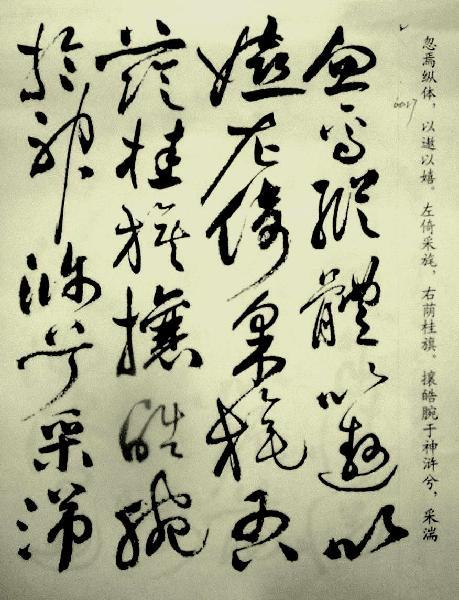 忽焉纵体，以遨以嬉。左倚采旄，右荫桂旗。攘皓腕于神浒兮，采湍
忽焉縱體以遨以
嬉左倚采旄右
蔭桂旗攘皓腕
於神滸兮采湍